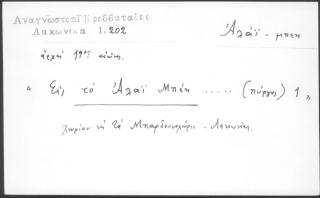 ΑναγνωστοπΓΚρεββαταδες
Λακωνικα 1.202
Ἀλάϊ-μπεη
ἀρχαὶ 19ου αἰῶνος.
" Εἰς τὸ Ἀλαῒ Μπέη ..... (πύργος) 1 "
Χωρίον εἰς τὰ Μπαρδουνοχώρια - Λακωνίας.